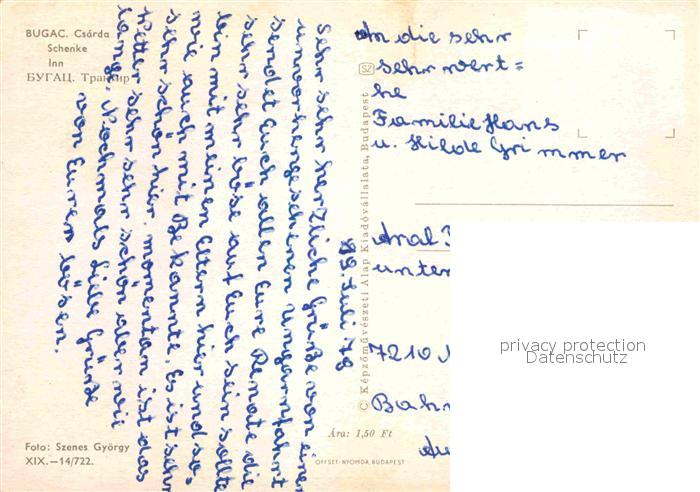 BUGAC. Csárda
Schenke
Inn
БУГАЦ. Трактир
Sehr sehr herzliche Grüße von einer
unvorhergesehenen Ungarnfahrt
sendet Euch allen Eure Renate die
sehr sehr böse auf Euch sein sollte
bin mit meinen Eltern hier und so
wie auch mit Bekannte. Es ist sehr
sehr schön hier. momentan ist das
Wetter sehr sehr schön aber wie
lange. Nochmals liebe Grüße
von Eurer bösen.
29 Juli 78
An die sehr
sehr wert=
he
Familie Hans
u. Hilde Grimmer
unter
7210
Bah
SZ
© Képzőművészeti Alap Kiadóvállalata, Budapest
Ára: 1,50 Ft
OFFSET-NYOMDA BUDAPEST
Foto: Szenes György
XIX.—14/722.
privacy protection
Datenschutz